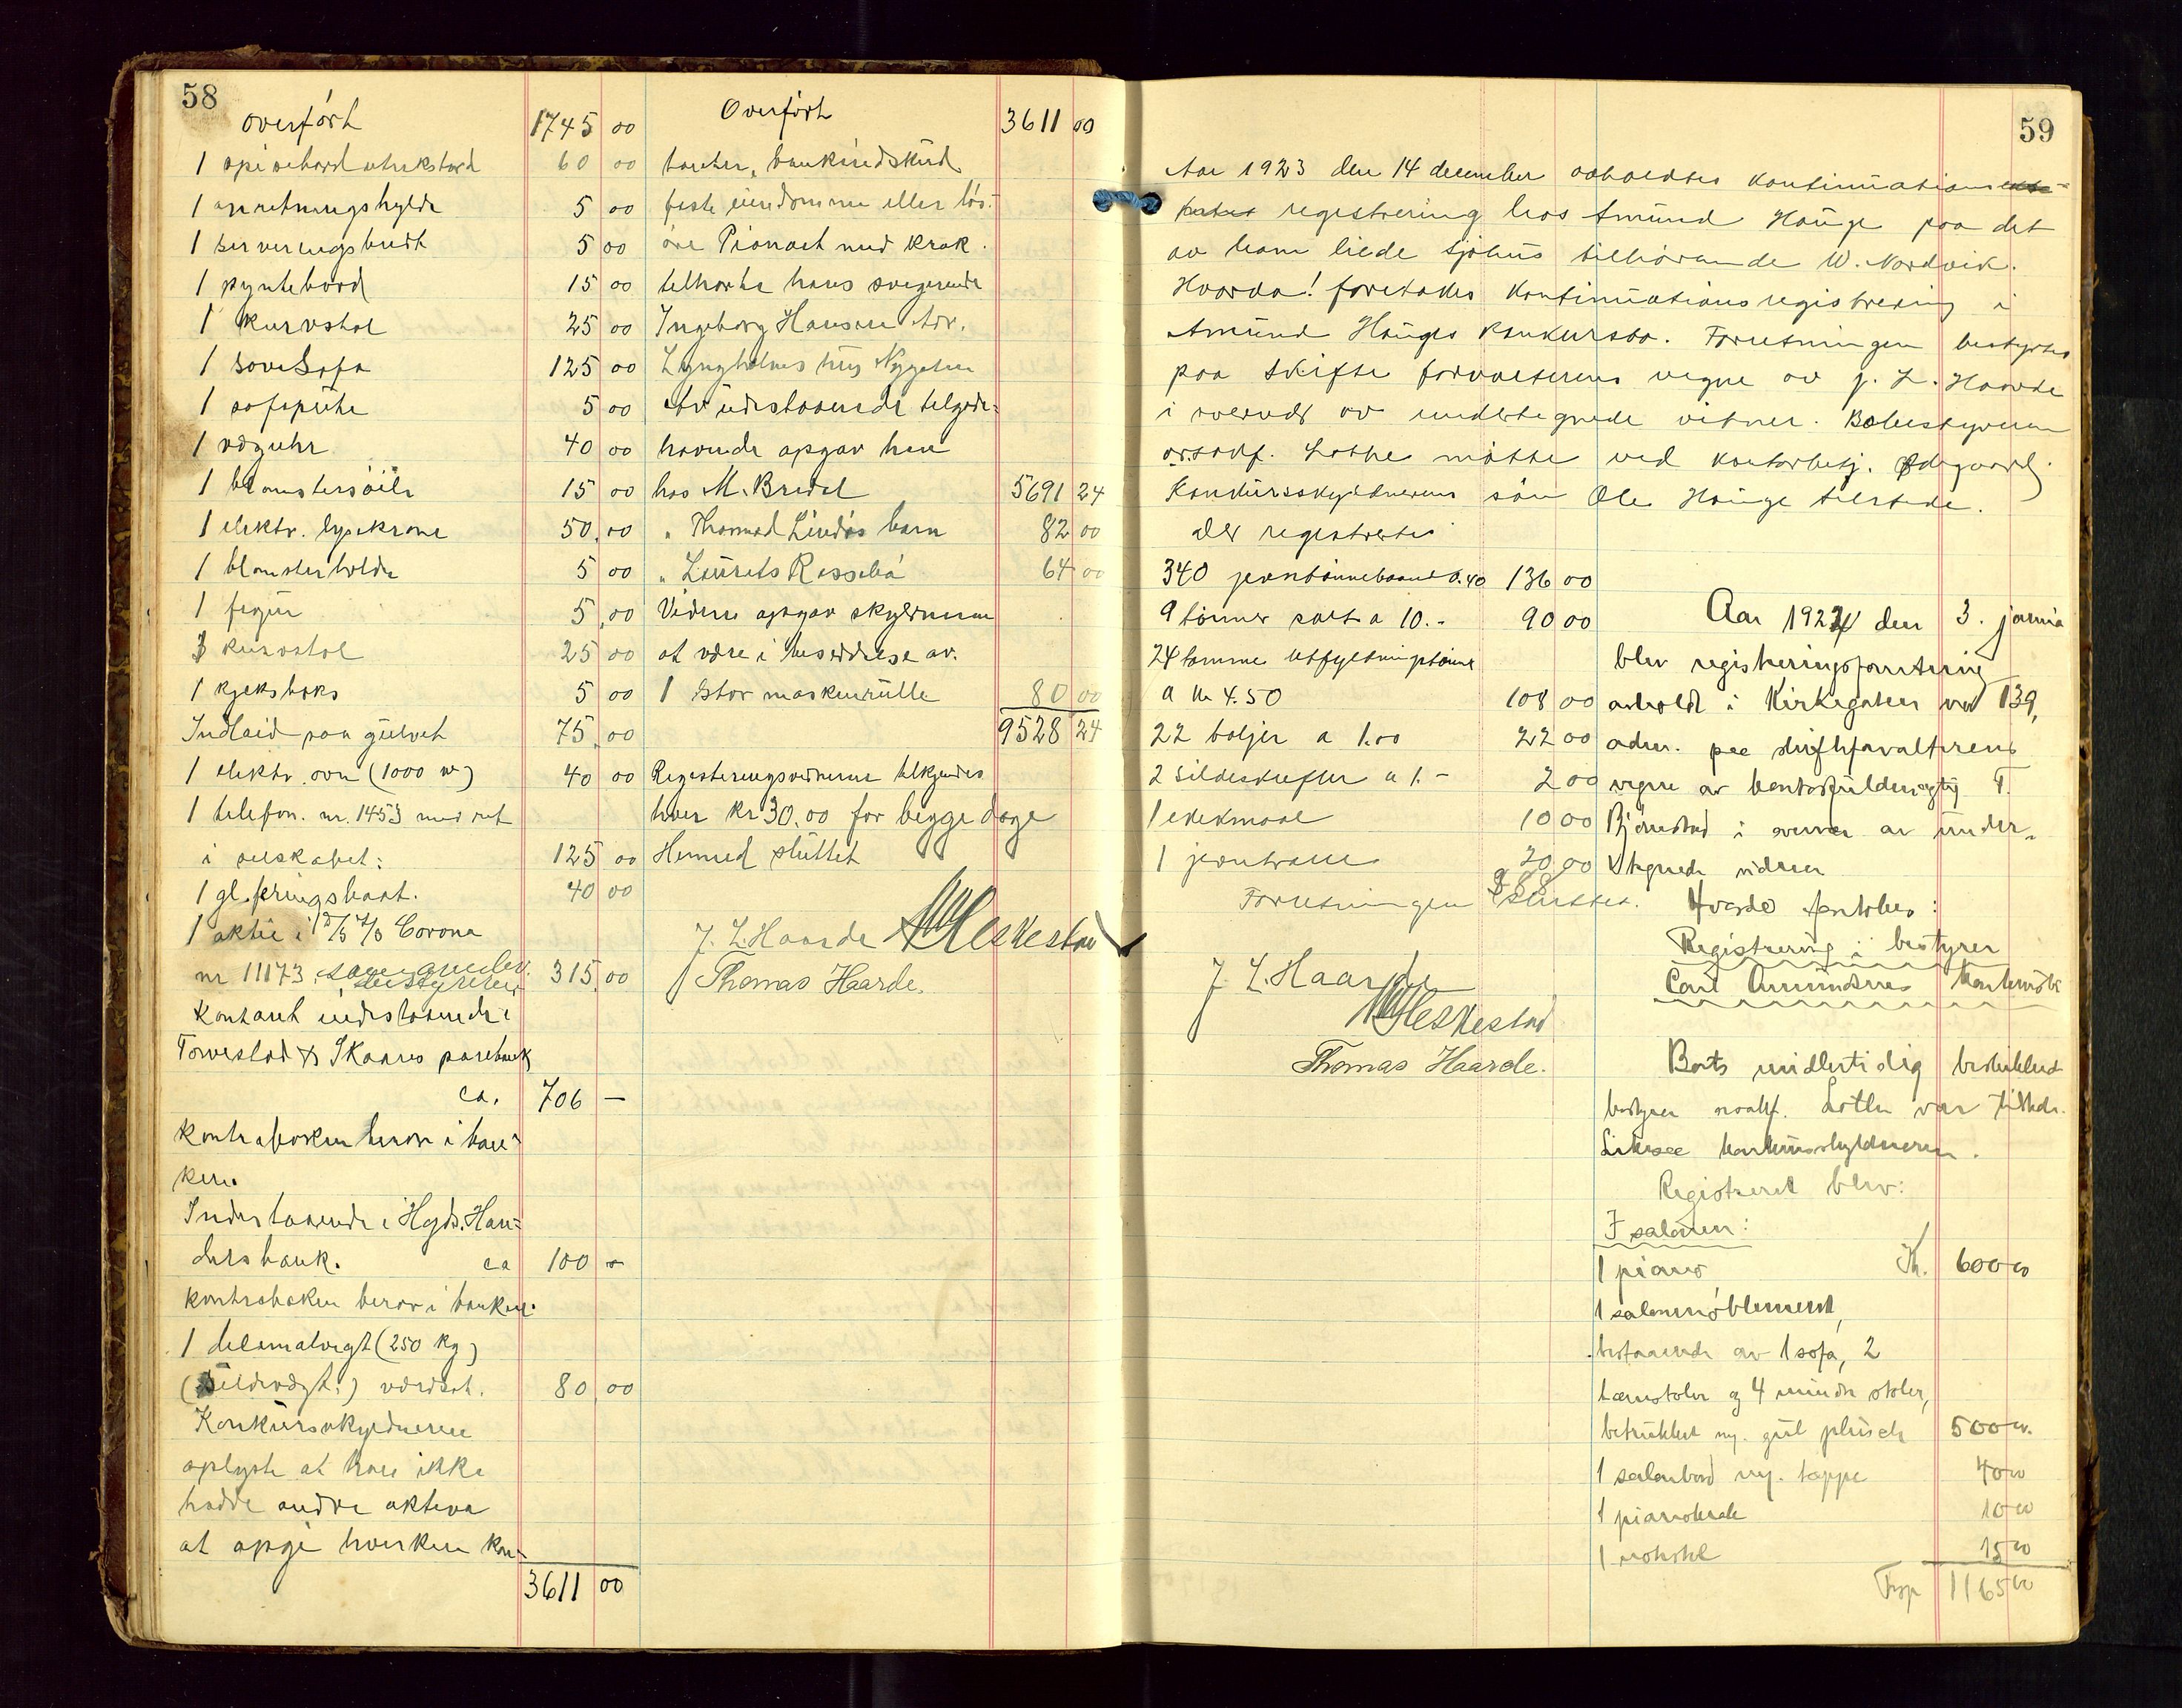 58
overført 1745 00
1 spisebord utrekstord 60 00
1 anretningshylde 5 00
1 serveringsbredt 5 00
1 pyntebord 15 00
1 kurvstol 25 00
1 sovesofa 125 00
1 sofapute 5 00
1 væguhr 40 00
1 blomstersöile 15 00
1 elektr. lysekrone 50.00
1 blomsterholder 5 00
1 figur 5.00
3 kurvstol 25 00
1 kjeksboks 5 00
Indlaid paa gulvet 75.00
1 elektr. ovn (1000 w) 40 00
1 telefon. nr. 1453 med ret
i selskabet: 125 00
1 gl. feringsbaat. 40 00
1 aktie i D/S A/S Corona
nr 11173. 315.00
Kontant indestaaende i
Torvestad & Skaares sparebank
ca. 706 —
kontraboken beror i ban-
ken.
Indestaaende i Hgds. Han-
delsbank. ca 100 -
kontraboken beror i banken.
1 decimalvegt (250 kg)
(Sildevægt:) værdsat. 80.00
Konkursskyldneren
oplyste at han ikke
hadde andre aktiva
at opgi hverken kon-
3611 00
Overført 3611 00
tanter, bankindskud
faste eiendomme eller lös-
öre Pianoet med krak
tilhørte hans svigerinde
Ingeborg Hansen adr.
Lyngholmes hus Nygaten
Av utestaaende tilgode-
havende opgav han
hos M. Bredal 5691 24
" Thormod Lindøs barn 82 00
" Laurits Rossebö 64 00
Videre opgav skyldneren
at være i besiddelse av.
1 stor maskinrulle 80 00
9528 24
Registeringsvidnerne tilkjendes
hver kr 30.00 for begge dage
Hermed sluttet
J. L. Haarde Heskestad
Thomas Haarde.
59
Aar 1923 den 14 december avholdtes kontinuations
registrering hos Amund Hauge paa det
av ham leiede sjøhus tilhørende W. Nordvik.
Hvorda! foretokes kontinuationsregistrering i
Amund Hauges konkursbo. Forretningen bestyrtes
paa skifte forvalterens vegne av J. L. Haarde
i overvær av undertegnede vitner. Bobestyreren
o.r.sakf. Lothe møtte ved kontorbetj. Ødegaard.
Konkursskyldnerens sön Ole Hauge tilstede.
der registrertes
340 jerntönnebaand 0.40 136 00
9 tönner salt a 10.- 90 00
24 tomme utfyldningstönner
a kr 4.50 108 00
22 baljer a 1.00 22 00
2 sildeskuffler a 1.- 2 00
1 ekekmaal 10 00
1 jerntralle 20.00
388
Forretningen sluttet.
J. L. Haarde
Heskestad
Thomas Haarde.
Aar 1924 den 3. janua
blev registreringsforretning
avholdt i Kirkegaten nr 139,
adm. paa skifteforvalterens
vegne av kontorfuldmægtig T.
Bjørnstad i overvær av under-
tegnede vidner
Hvorda foretokes:
Registrering i bestyrer
Carl Amundsens konkursbo
Boets midlertidig beskikket
bestyrer o.r.sakf. Lothe var tilstede.
Likesaa konkursskyldneren.
Registreret blev:
I salonen:
1 piano Kr. 600 00
1 salonmöblement,
bestaaende av 1 sofa, 2
lænstoler og 4 mindre stoler,
betrukket m. gul plüsch 500 00
1 salonbord m. teppe 40 00
1 pianokrak 10 00
1 notestol 15 00
Trsp 1165 00